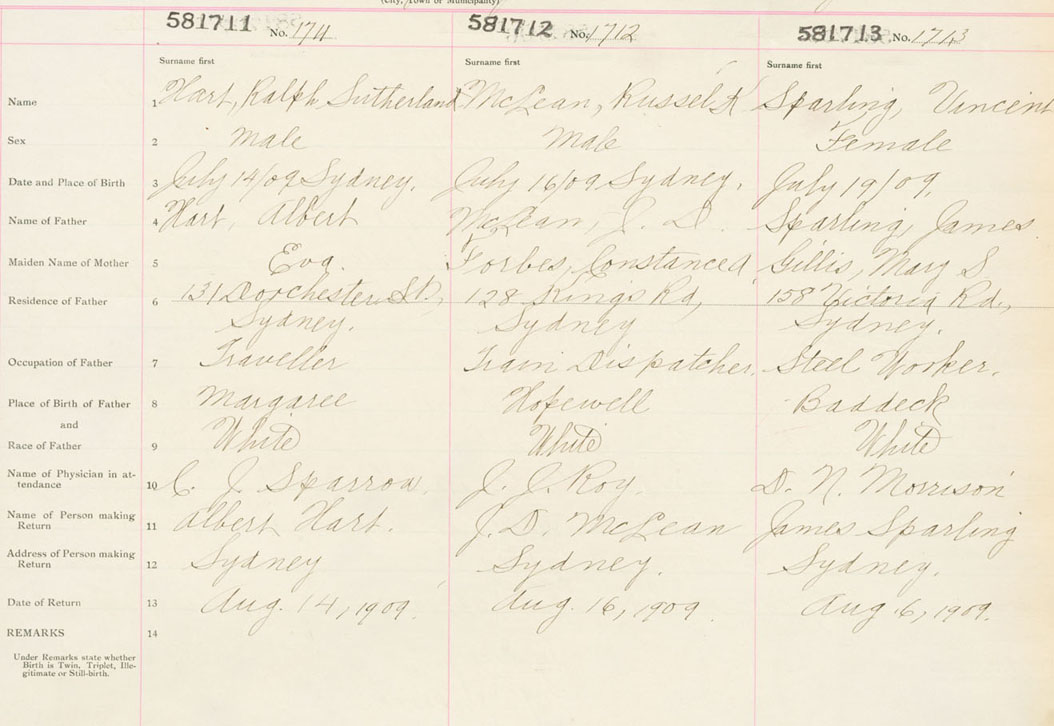 (City, Town or Municipality)
581711 No. 1711 581712 No. 1712 581713 No. 1713
Surname first Surname first Surname first
Name 1 Hart, Ralph Sutherland McLean, Russel R Sparling, Vincent
Sex 2 Male Male Female
Date and Place of Birth 3 July 14/09 Sydney. July 16/09 Sydney. July 19/09
Name of Father 4 Hart, Albert McLean, J. D. Sparling, James
Maiden Name of Mother 5 Eva. Forbes, Constance A Gillis, Mary S
Residence of Father 6 131 Dorchester St., 128 Kings Rd, 158 Victoria Rd.,
Sydney. Sydney Sydney.
Occupation of Father 7 Traveller Train Dispatcher. Steel Worker.
Place of Birth of Father 8 Margaree Hopewell Baddeck
and
Race of Father 9 White White White
Name of Physician in at-
tendance 10 C. J. Sparrow. J. J. Roy. D. N. Morrison
Name of Person making
Return 11 Albert Hart. J. D. McLean James Sparling
Address of Person making
Return 12 Sydney Sydney. Sydney.
Date of Return 13 Aug. 14, 1909. Aug. 16, 1909. Aug 6, 1909.
REMARKS 14
Under Remarks state whether
Birth is Twin, Triplet, Ille-
gitimate or Still-birth.